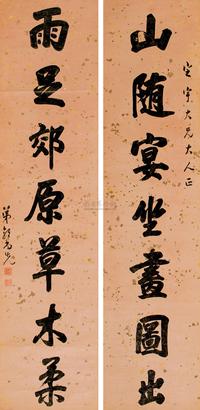 山随宴坐畫圖出
定宇大兄大人正
雨足郊原草木柔
弟郭尚先